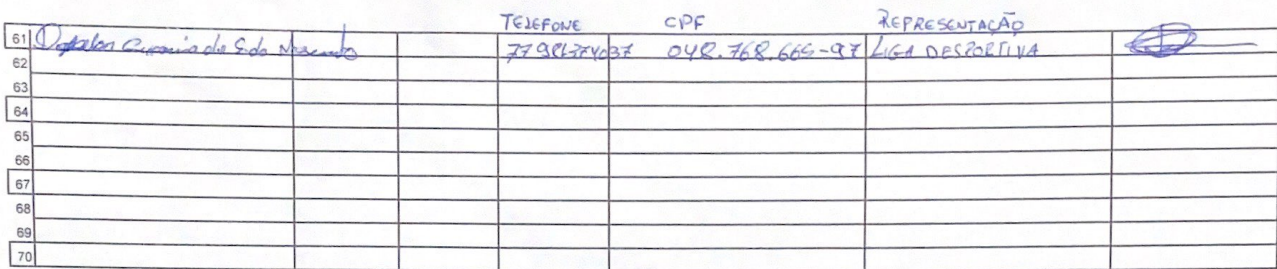 TELEFONE CPF REPRESENTAÇÃO
61 de S. do 048.768.665-97 LIGA DESPORTIVA
62
63
64
65
66
67
68
69
70